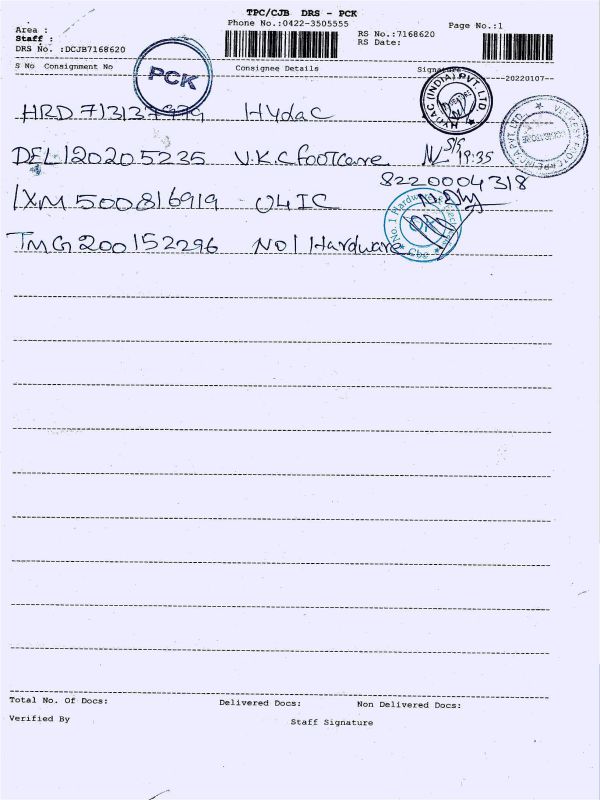 TPC/CJB DRS - PCK
Phone No.:0422-3505555
Page No.:1
Area :
Staff :
DRS No. :DCJB7168620
RS No.:7168620
RS Date:
S No Consignment No Consignee Details Signature
--20220107--
PCK
HYDAC (INDIA) PVT. LTD.
HRD 713137979 Hydac
DEL 120205235 V.K.C footcare 19:35
8220004318
IXM 500816919 U4IC
TMG 200152296 NO1 Hardware
Total No. Of Docs: Delivered Docs: Non Delivered Docs:
Verified By Staff Signature